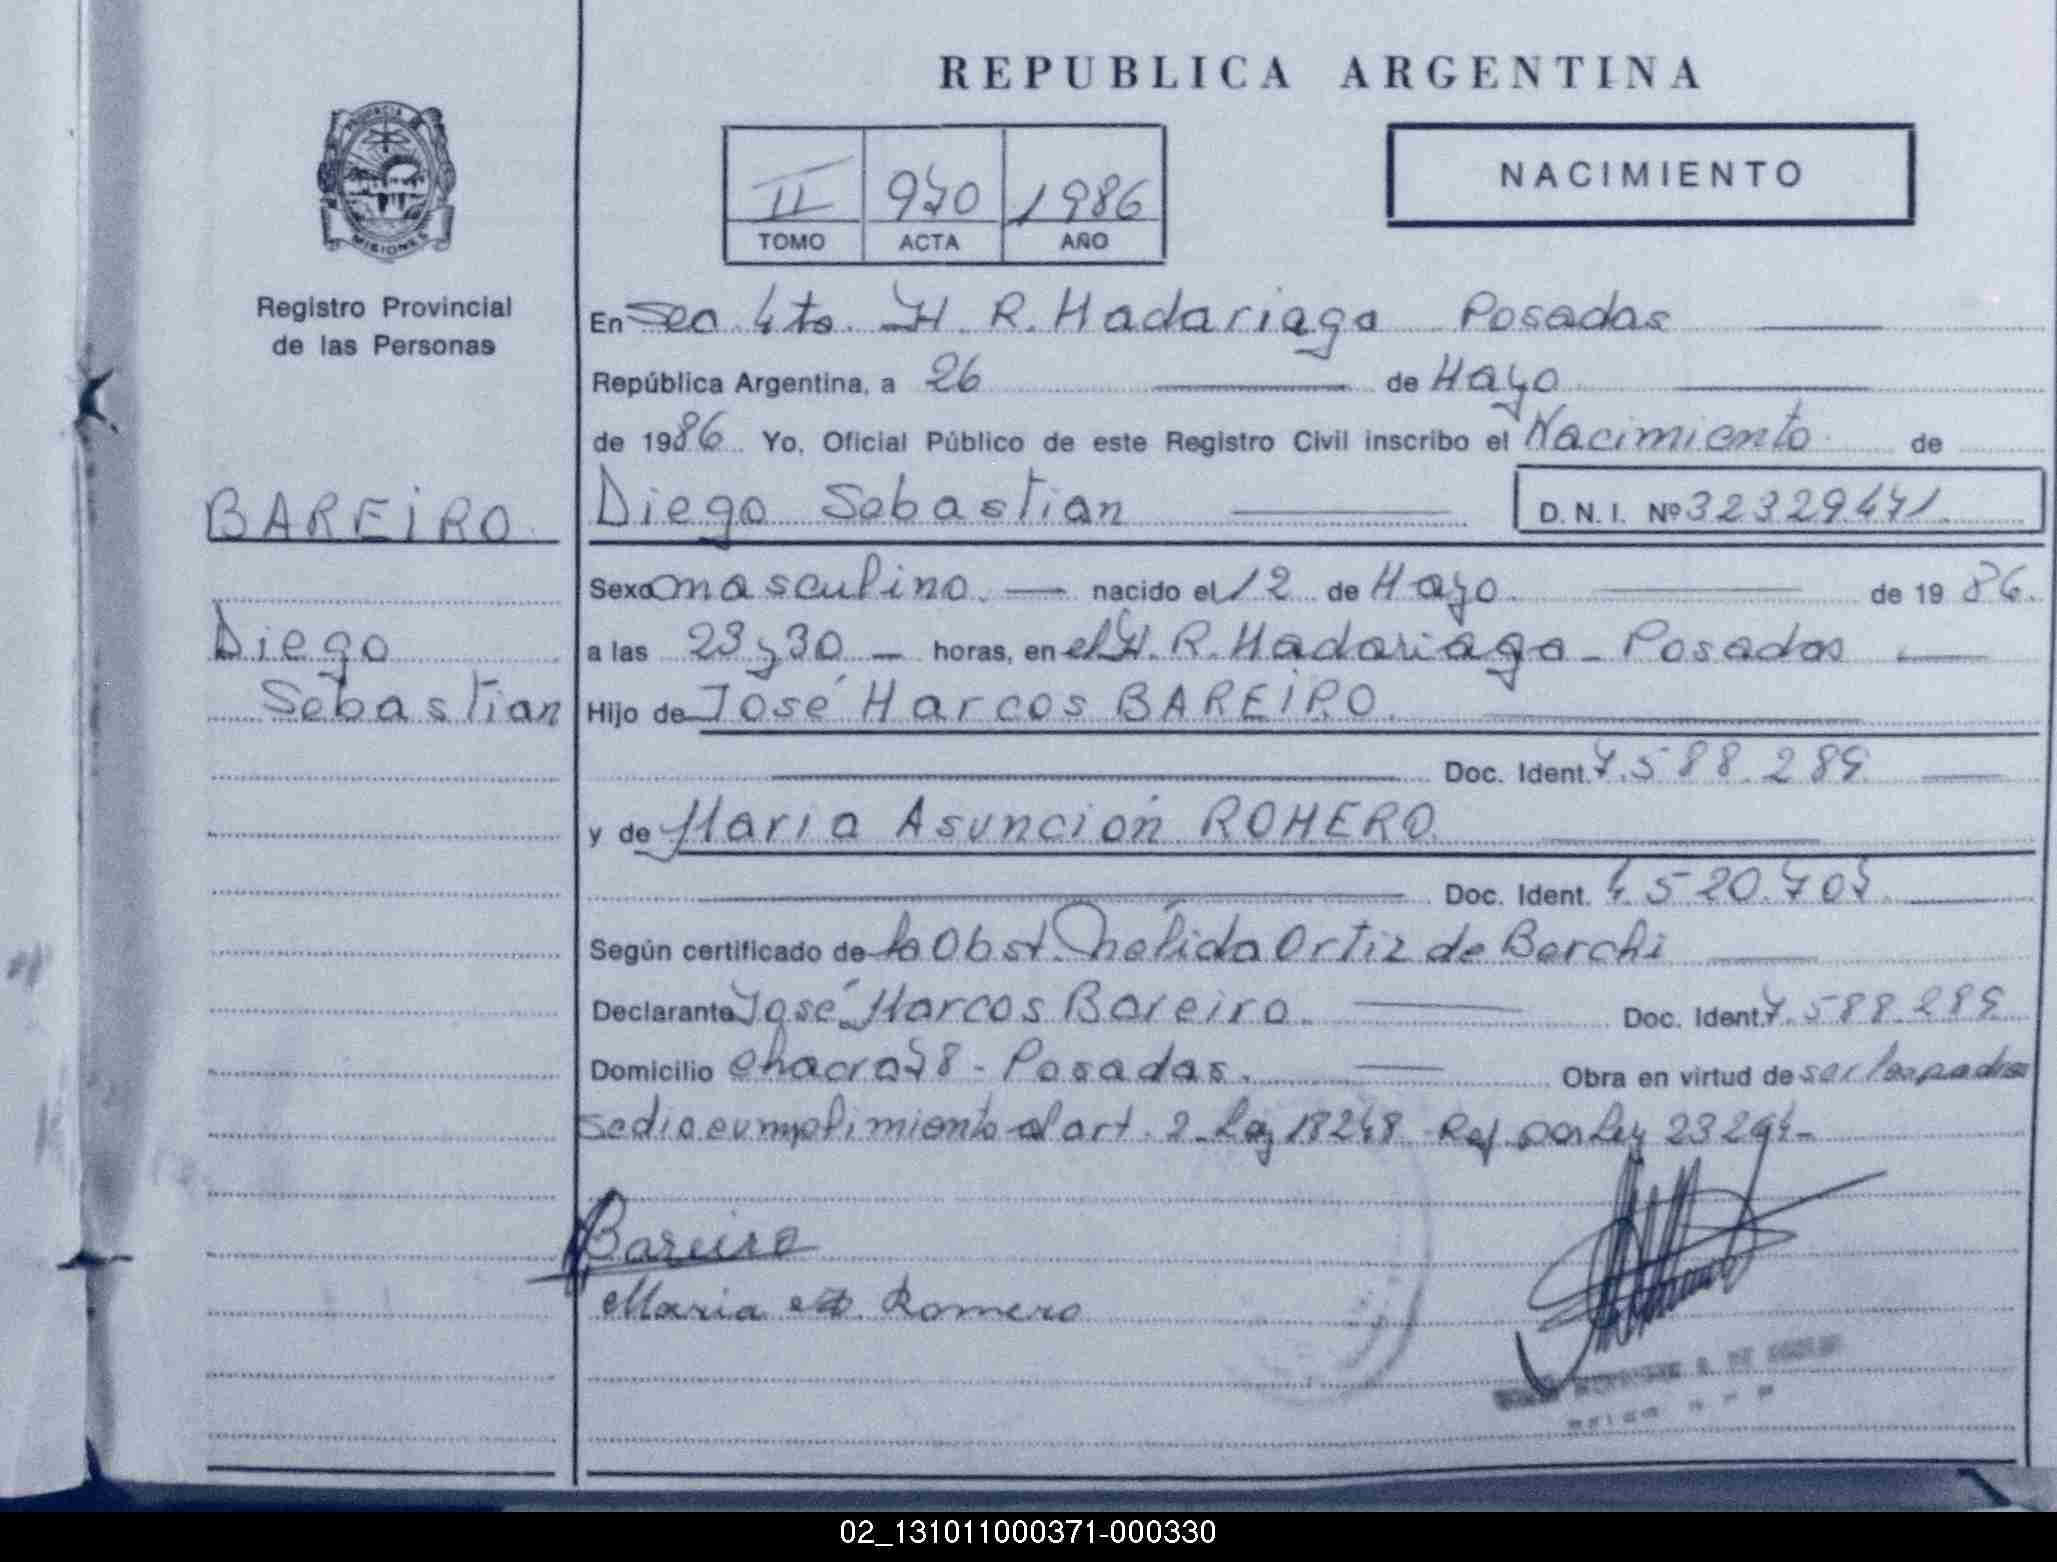 REPUBLICA ARGENTINA
PROVINCIA DE
MISIONES
Registro Provincial
de las Personas
II 970 1986
TOMO ACTA AÑO
NACIMIENTO
En Sec 4ta. H. R. Madariaga Posadas
República Argentina, a 26 de Mayo
de 1986 Yo, Oficial Público de este Registro Civil inscribo el Nacimiento de
BAREIRO
Diego Sebastian D. N. I. Nº 32329471
Sexo masculino. nacido el 12 de Mayo. de 1986.
Diego
Sebastian
a las 23 y 30 horas, en el H. R. Madariaga - Posadas
Hijo de José Marcos BAREIRO.
Doc. Ident. 7.588.289
y de Maria Asunción ROMERO.
Doc. Ident. 4.520.707
Según certificado de la Obst. Nélida Ortiz de Berchi
Declarante José Marcos Bareiro. Doc. Ident. 7.588.289
Domicilio Chacra 78 - Posadas. Obra en virtud de ser los padres
se dio cumplimiento al art. 2 - Ley 18248 - Ref por Ley 23264-
Bareiro
Maria A. Romero
02_131011000371-000330